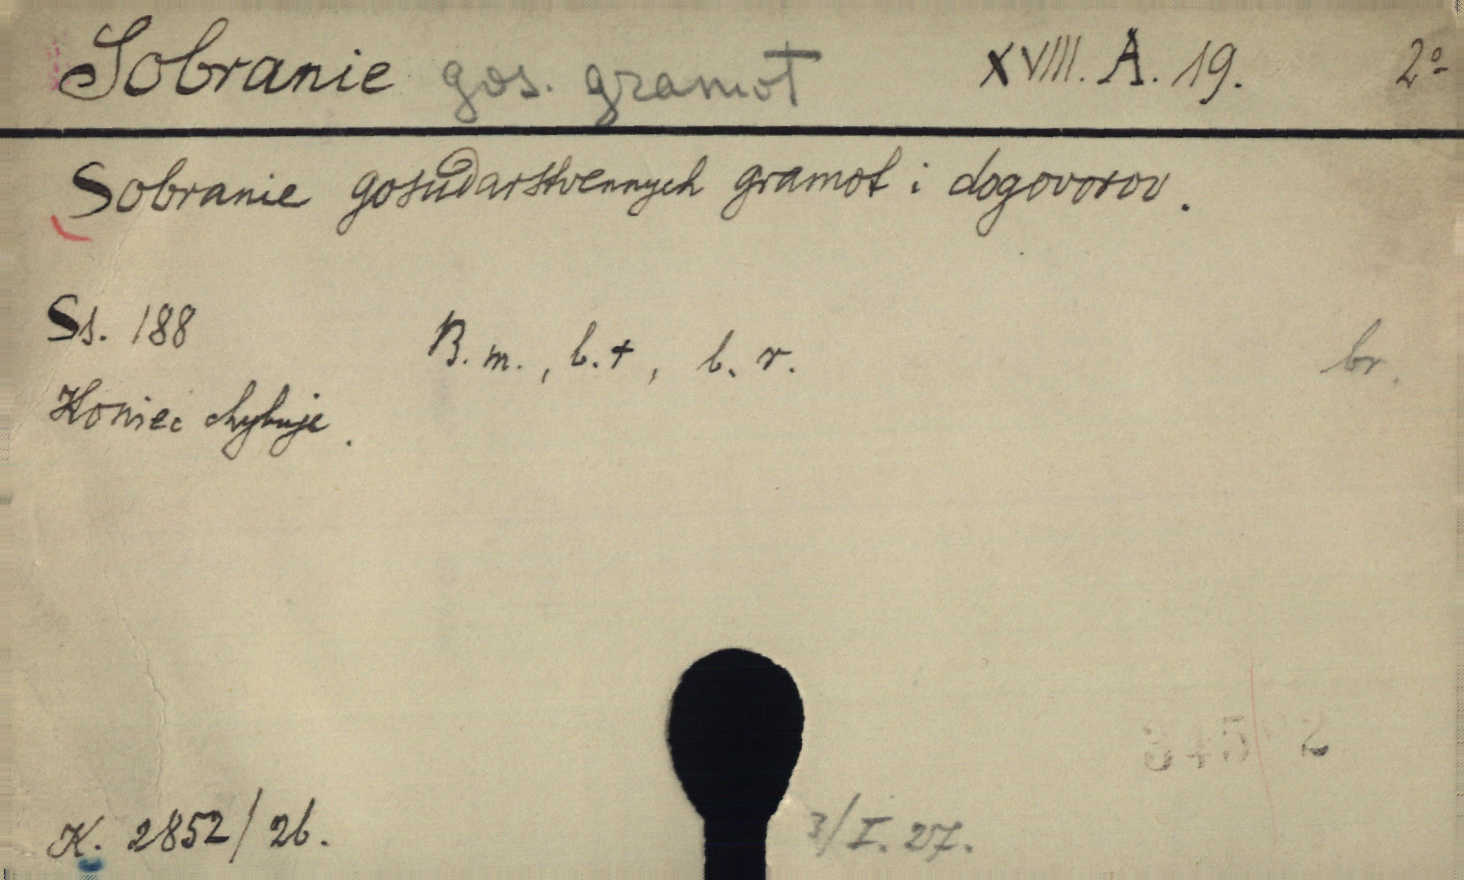 Sobranie gos. gramot XVIII. A. 19. 2º
Sobranie gosudarstvennych gramot i dogovorov.
Ss. 188 B. m., b. t., b. r. br.
Koniec chybuje.
K. 2852/26. 3/I. 27.